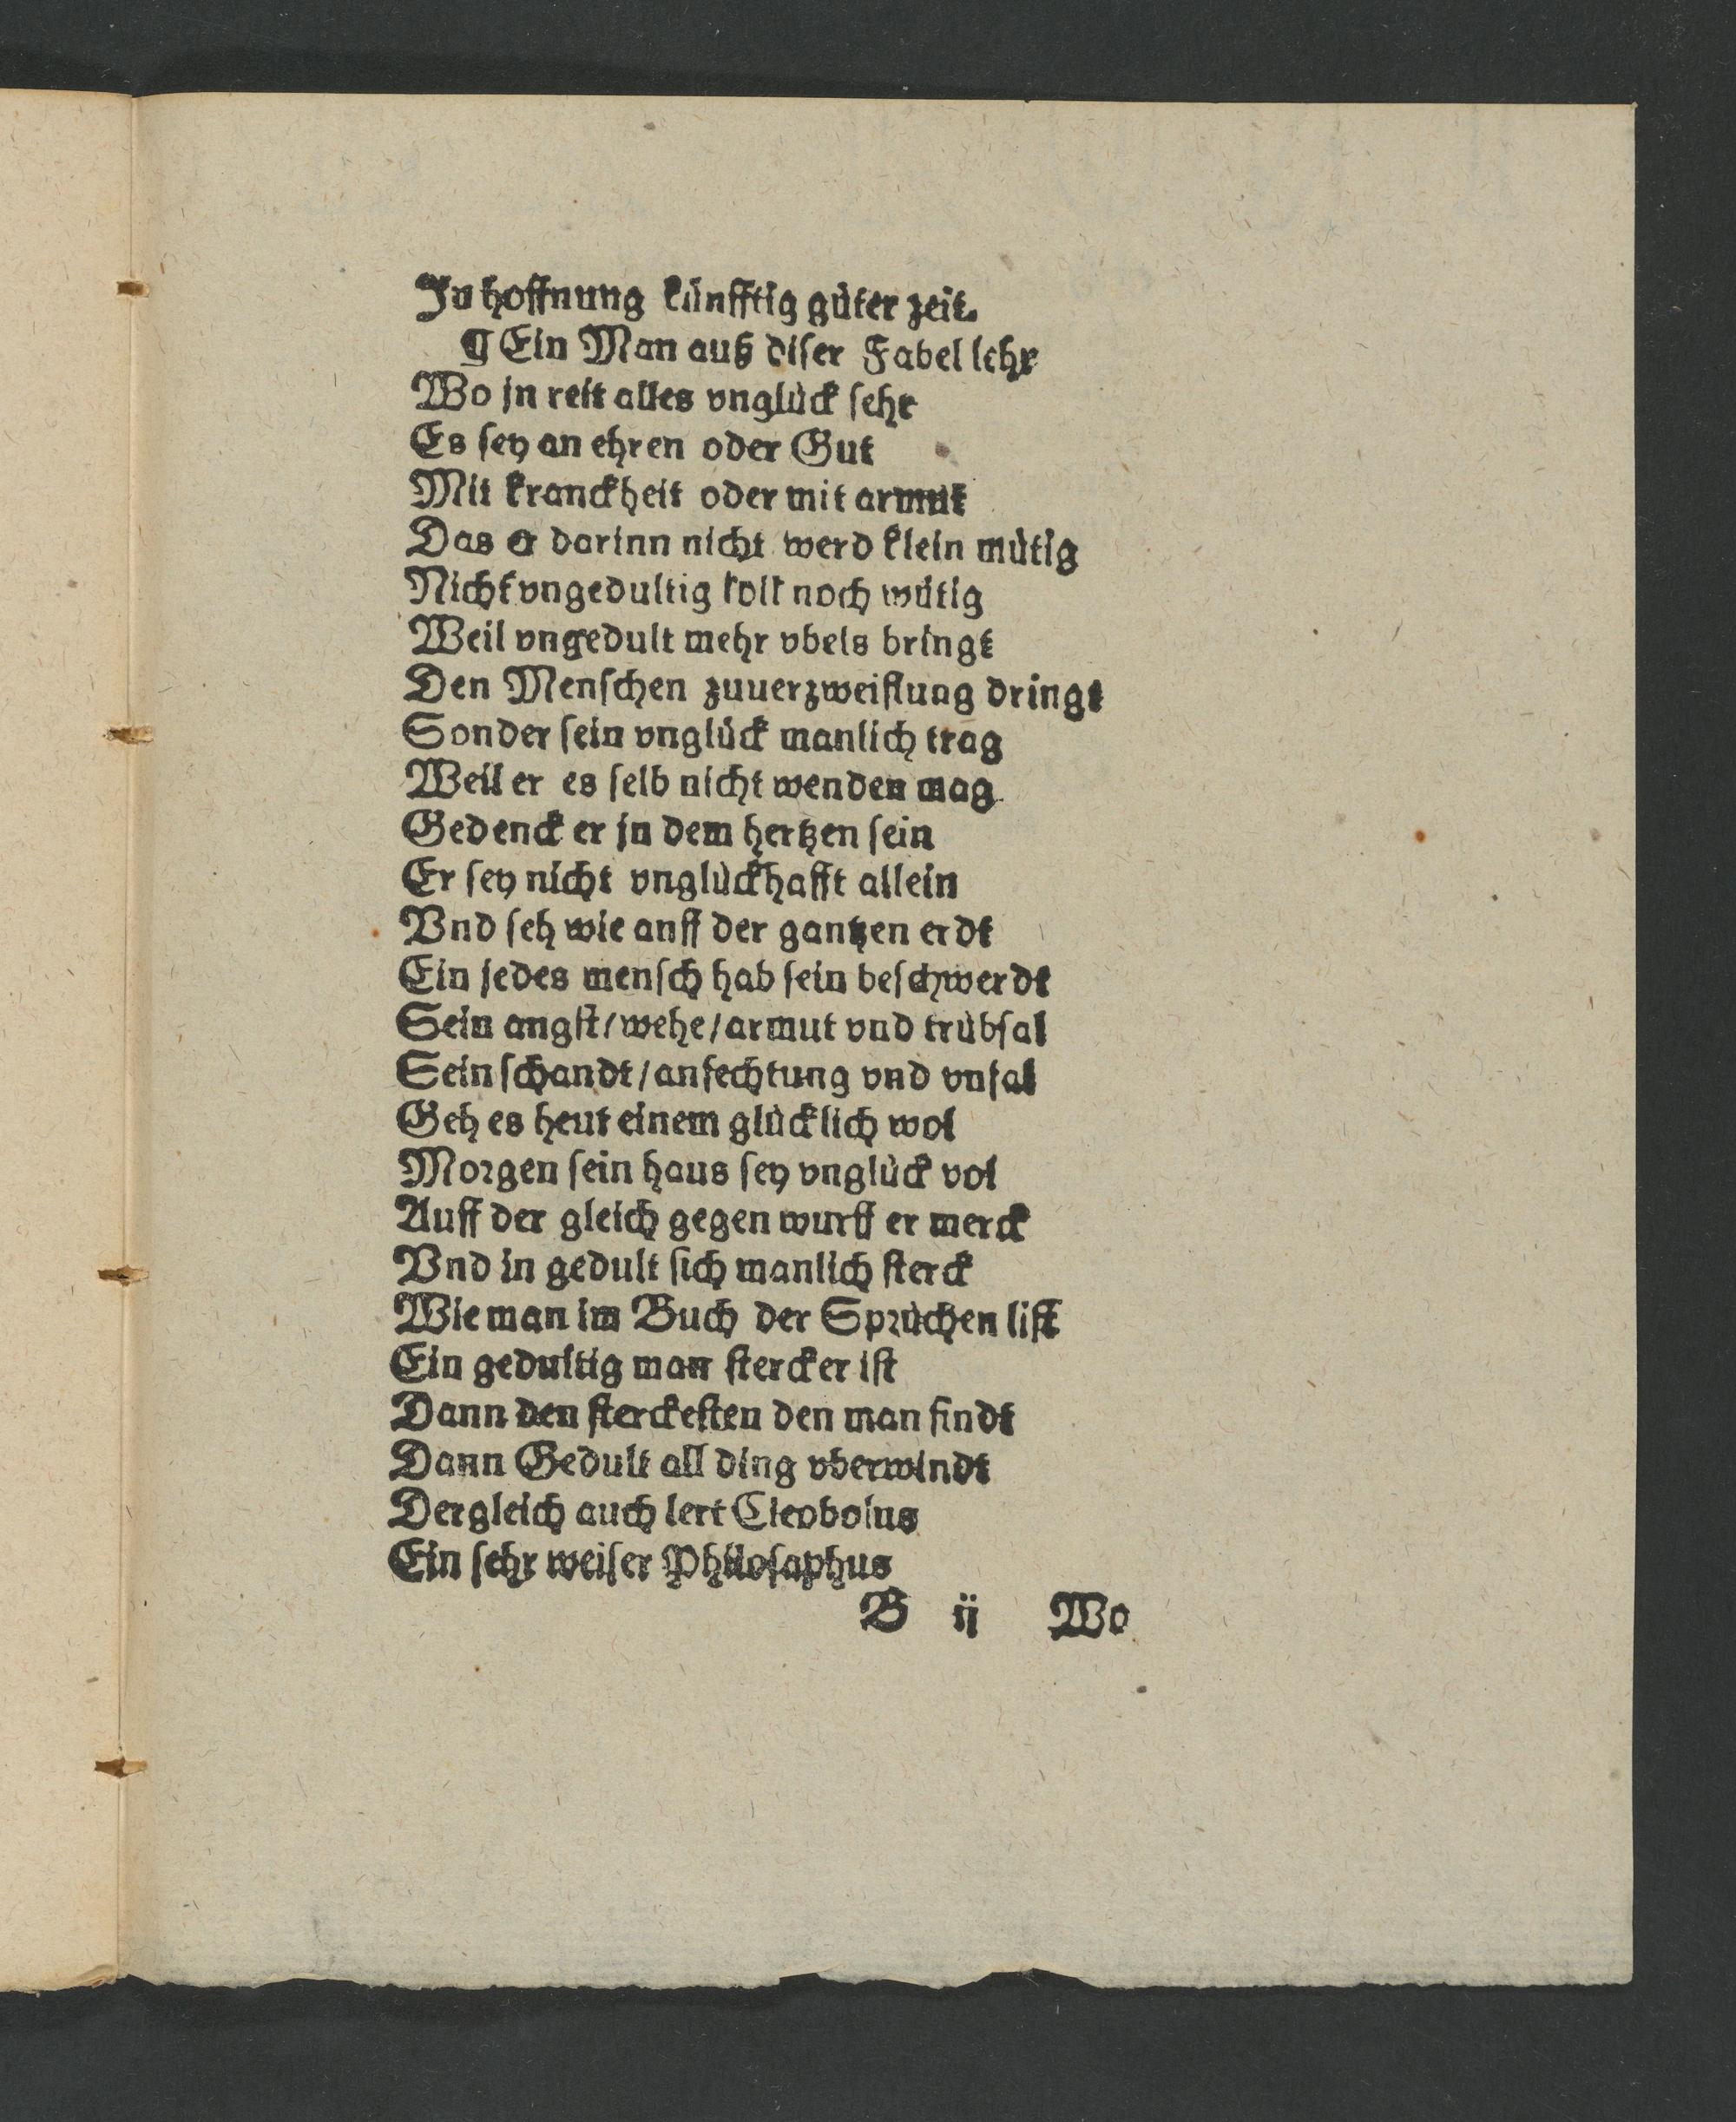 Jn hoffnung künfftig güter zeit.
¶ Ein Man auß diser Fabel lehr
Wo jn reit alles vnglück sehr
Es sey an ehren oder Gut
Mit kranckheit oder mit armut
Das er darinn nicht werd klein mütig
Nicht vngedultig soll noch wütig
Weil vngedult mehr vbels bringt
Den Menschen zuuerzweiflung dringt
Sonder sein vnglück manlich trag
Weil er es selb nicht wenden mag
Gedenck er jn dem hertzen sein
Er sey nicht vnglückhafft allein
Vnd seh wie anff der gantzen erdt
Ein jedes mensch hab sein beschwerdt
Sein angst/ wehe/ armut vnd trübsal
Sein schandt/ anfechtung vnd vnfal
Geh es heut einem glücklich wol
Morgen sein haus sey vnglück vol
Auff der gleich gegen wurff er merck
Vnd in gedult sich manlich sterck
Wie man im Buch der Sprüchen list
Ein gedultig man stercker ist
Dann den sterckesten den man findt
Dann Gedult all ding vberwindt
Dergleich auch lert Cleobolus
Ein sehr weiser Philosaphus
B ij Wo